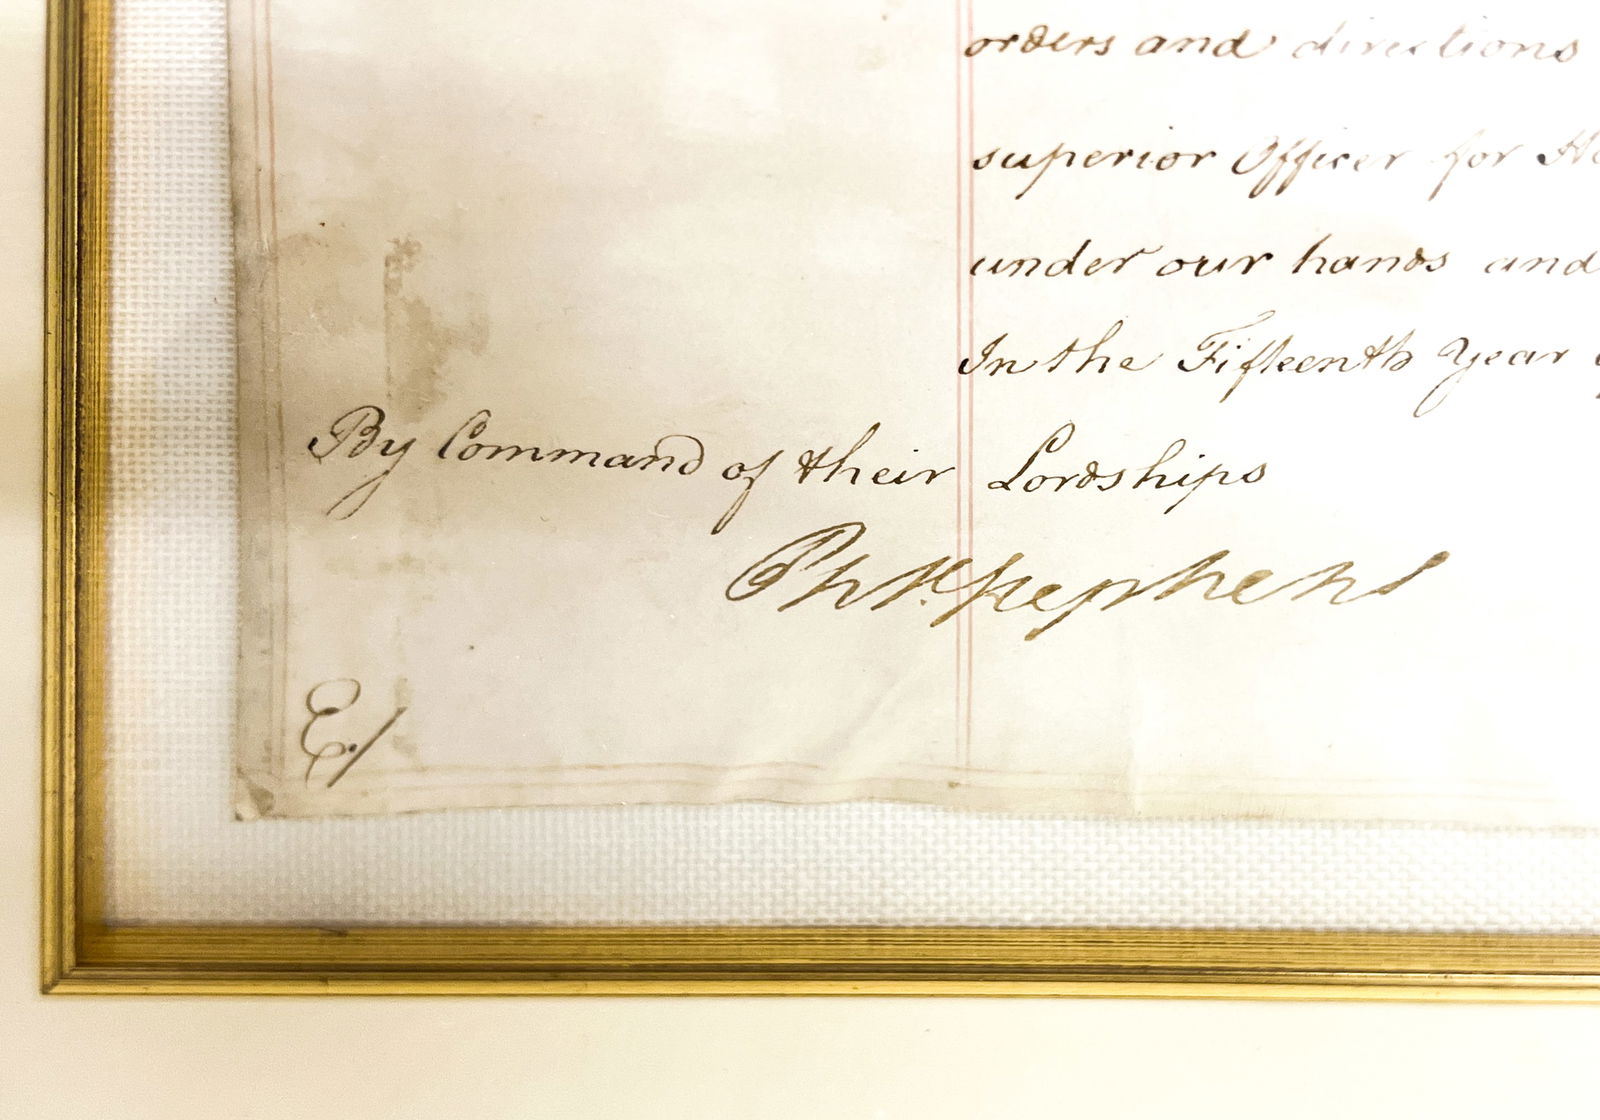 orders and directions
superior Officer for
under our hands and
In the Fifteenth Year
By Command of their Lordships
Php Stephens
E/